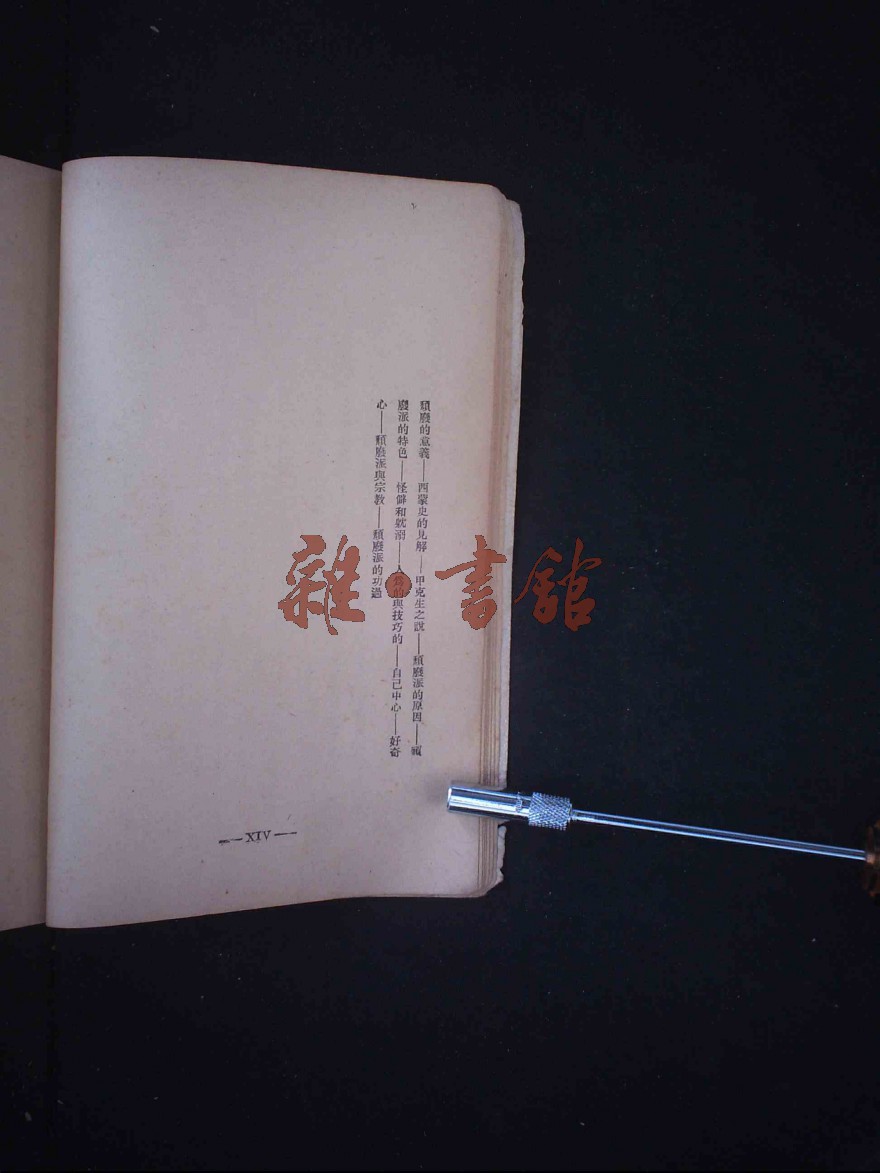 頹廢的意義——西蒙史的見解——甲克生之說——頹廢派的原因——頹
廢派的特色——怪僻和躭溺——人爲的與技巧的——自己中心——好奇
心——頹廢派與宗教——頹廢派的功過
— XIV —
雜·書館